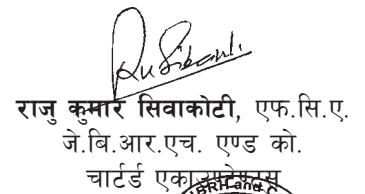 राजु कुमार सिवाकोटी, एफ.सि.ए.
जे.बि.आर.एच. एण्ड को.
चार्टर्ड एकाउण्टेण्टस